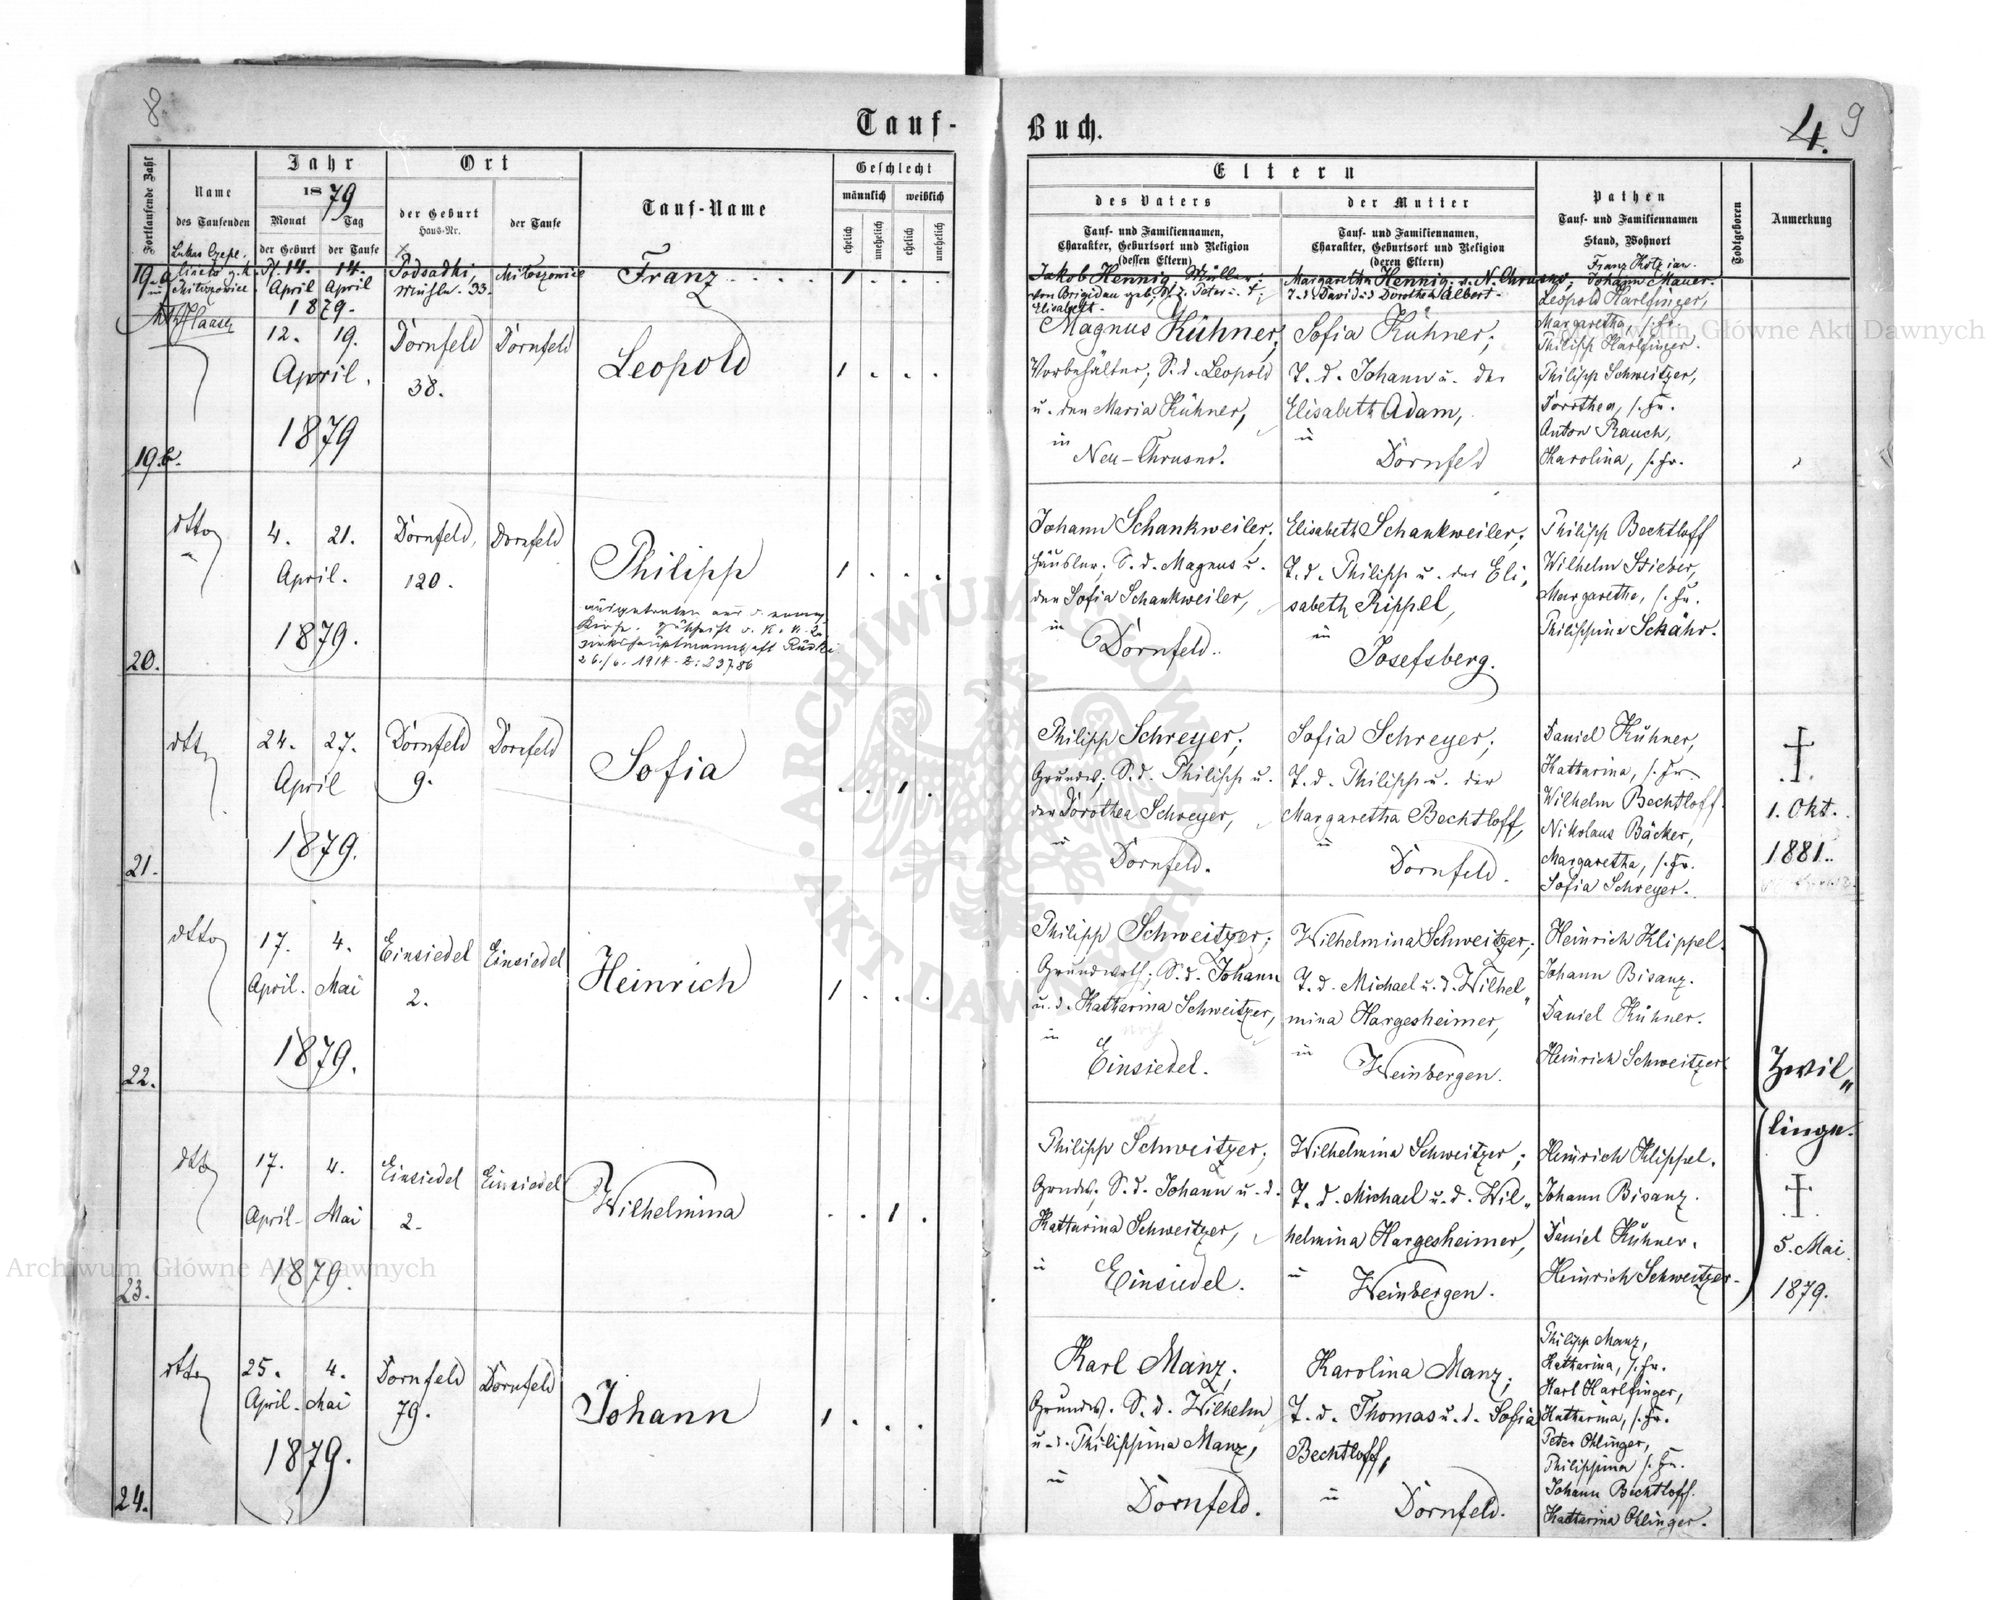 8.
Tauf-
Fortlaufende Zahl
Name
des Taufenden
Jahr
1879
Monat
Tag
der Geburt
der Taufe
Ort
der Geburt
Haus-Nr.
der Taufe
Tauf-Name
Geschlecht
männlich
weiblich
ehelich
unehelich
ehelich
unehelich
19.a
14. 14.
April April
1879.
Podsadki,
Mühle. 33.
Franz
1
19.b.
Haase
12. 19.
April.
1879
Dornfeld
38.
Dornfeld
Leopold
1 . . .
20.
dtto
4. 21.
April.
1879.
Dornfeld,
120.
Dornfeld
Philipp
26./6. 1914. Z: 23786
1 . . .
21.
dtto
24. 27.
April
1879.
Dornfeld
9.
Dornfeld
Sofia
. . 1 .
22.
dtto
17. 4.
April. Mai
1879.
Einsiedel
2.
Einsiedel
Heinrich
1 . . .
23.
dtto
17. 4.
April- Mai
1879.
Einsiedel
2.
Einsiedel
Wilhelmina
. . 1 .
24.
dtto
25. 4.
April- Mai
1879.
Dornfeld
79.
Dornfeld
Johann
1 . . .
Buch.
4. 9
Eltern
des Vaters
Tauf- und Familiennamen,
Charakter, Geburtsort und Religion
(dessen Eltern)
der Mutter
Tauf- und Familiennamen,
Charakter, Geburtsort und Religion
(deren Eltern)
Pathen
Tauf- und Familiennamen
Stand, Wohnort
Todtgeboren
Anmerkung
Jakob Hennig, Müller;
Elisabeth.
Margaretha Hennig
T. d. David u. d. Dorothea Albert.
Johann Mauer.
Magnus Kühner,
Vorbehälter; S. d. Leopold
u. der Maria Kühner,
in
Neu-Chrusno.
Sofia Kühner;
T. d. Johann u. der
Elisabeth Adam,
in
Dornfeld
Leopold Harlfinger,
Margaretha, s. Fr.
Philipp Harlfinger.
Philipp Schweitzer,
Dorothea, s. Fr.
Anton Rauch,
Karolina, s. Fr.
Johann Schankweiler;
Häusler; S. d. Magnus u.
der Sofia Schankweiler,
in
Dornfeld.
Elisabeth Schankweiler;
T. d. Philipp u. der Eli„
sabeth Rippel,
in
Josefsberg.
Philipp Bechtloff
Wilhelm Stieber,
Margaretha, s. Fr.
Philippine
Philipp Schreyer;
Grundw; S. d. Philipp u.
der Dorothea Schreyer,
in
Dornfeld.
Sofia Schreyer;
T. d. Philipp u. der
Margaretha Bechtloff,
in
Dornfeld.
Daniel Kühner,
Katharina, s. Fr.
Wilhelm Bechtloff.
Nikolaus Bäcker,
Margaretha, s. Fr.
Sofia Schreyer.
1. Okt.
1881.
Philipp Schweitzer;
Grundwth; S. d. Johann
u. d. Katharina Schweitzer,
in
Einsiedel.
Wilhelmina Schweitzer;
T. d. Michael u. d. Wilhel„
mina Hargesheimer,
in
Weinbergen.
Heinrich Klippel.
Johann Bisanz.
Daniel Kühner.
Heinrich Schweitzer
Zwil„
linge.
Philipp Schweitzer;
Grndw; S. d. Johann u. d.
Katharina Schweitzer,
in
Einsiedel.
Wilhelmina Schweitzer;
T. d. Michael u. d. Wil„
helmina Hargesheimer,
in
Weinbergen.
Heinrich Klippel.
Johann Bisanz.
Daniel Kühner.
Heinrich Schweitzer.
5. Mai.
1879.
Karl Manz;
Grundw. S. d. Wilhelm
u. d. Philippina Manz,
in
Dornfeld.
Karolina Manz;
T. d. Thomas u. d. Sofia
Bechtloff,
in
Dornfeld.
Philipp Manz,
Katharina, s. Fr.
Karl Harlfinger,
Katharina, s. Fr.
Peter Ohlinger,
Philippina s. Fr.
Johann Bechtloff.
Katharina Ohlinger.
Archiwum Główne Akt Dawnych
Archiwum Główne Akt Dawnych